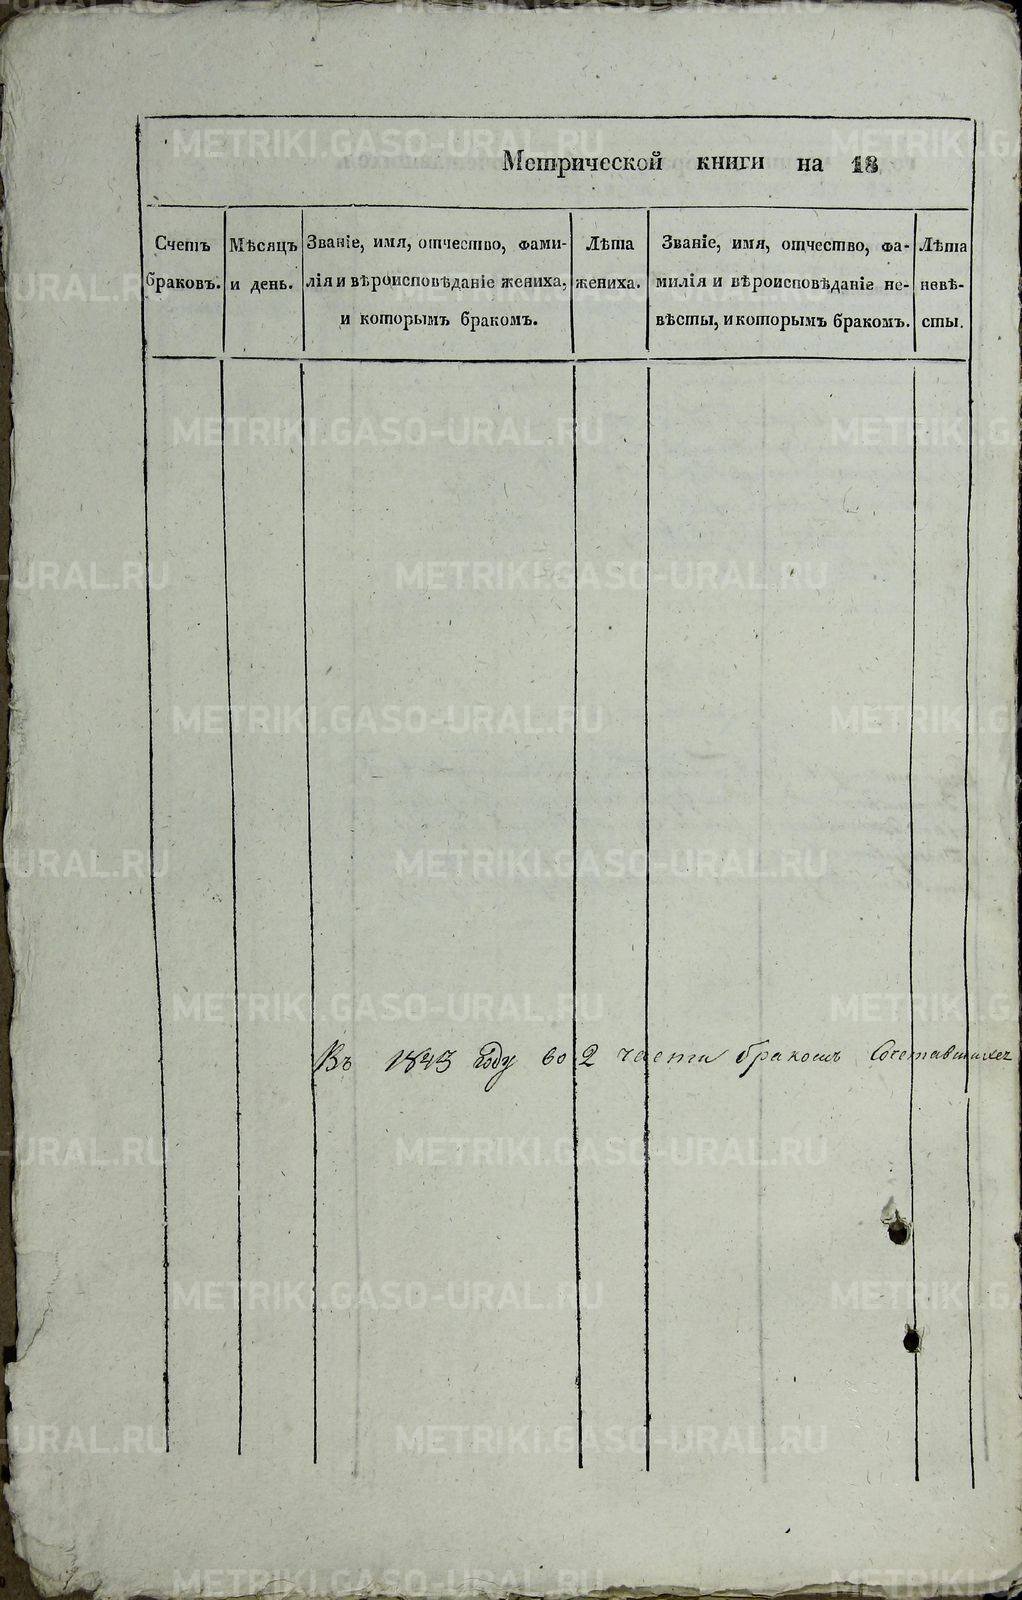 Метрической книги на 18
Счетъ браковъ.
Мѣсяцъ и день.
Званіе, имя, отчество, фами-
лія и вѣроисповѣданіе жениха,
и которымъ бракомъ.
Лѣта
жениха.
Званіе, имя, отчество, фа-
милія и вѣроисповѣданіе не-
вѣсты, и которымъ бракомъ.
Лѣта
невѣ-
сты.
Въ 1843 году во 2 части бракомъ Сочетавшихся
METRIKI.GASO-URAL.RU